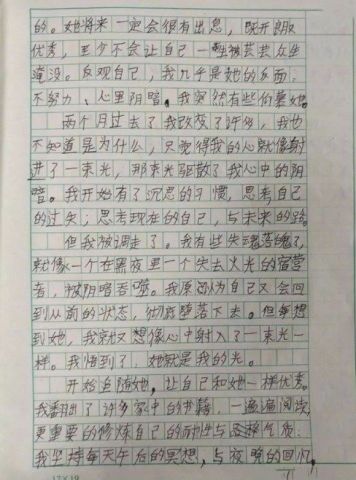 的。她将来一定会很有出息，既开朗又
优秀，至少不会让自己一生被芸芸众生
淹没。反观自己，我几乎是她的反面：
不努力、心里阴暗。我突然有些仰慕她。
两个月过去了我改变了许多，我也
不知道是为什么，只觉得我的心就像射
进了一束光，那束光驱散了我心中的阴
暗。我开始有了沉思的习惯，思考自己
的过失；思考现在的自己，与未来的路。
但我被调走了。我有些失魂落魄了，
就像一个在黑夜里一个失去火光的宿营
者，被阴暗吞噬。我原以为自己又会回
到从前的状态，彻底堕落下去。但每想
到她，我就又想像心中射入了一束光一
样。我悟到了，她就是我的光。
开始追随她，让自己和她一样优秀。
我翻出了许多家中的书籍，一遍遍阅读，
更重要的修炼自己的耐性与品格气质。
我坚持每天午后的冥想，与夜晚的回忆，